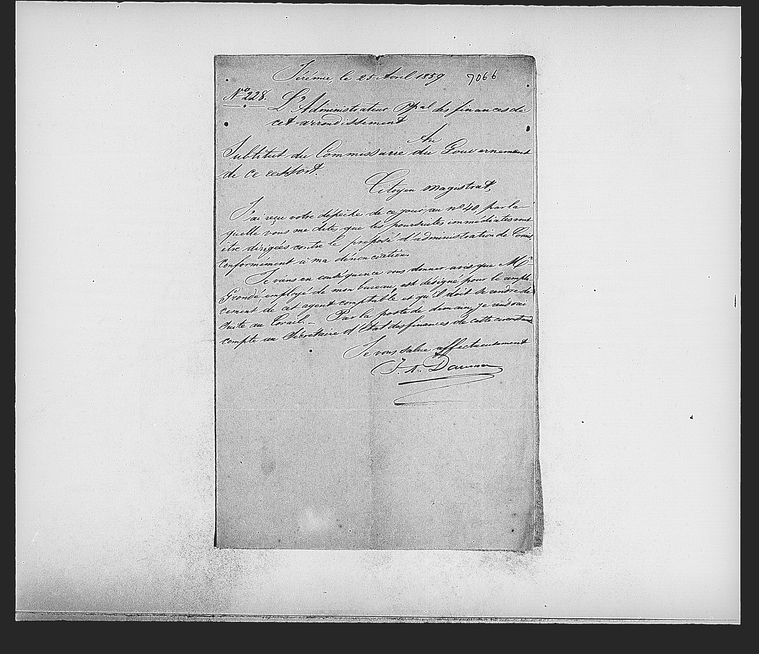 Jérémie, le 25 Avril 1859
7066
Nº 228. L'Administrateur Ppal des finances de
cet arrondissement
Au
Substitut du Commissaire du Gouvernement
de ce ressort.
Citoyen magistrat,
J'ai reçu votre dépêche de ce jour au nº 40, par la-
quelle vous me dites que les poursuites immédiates vont
être dirigées contre le préposé d'administration de
conformément à ma dénonciation.
Je viens en conséquence vous donner avis que Mr
employé de mon bureau, est désigné pour le rempla-
cement de cet agent comptable et qu'il doit se rendre de
suite au Corail. Par la poste de demain, je
compte au Secrétaire d'Etat des finances de cette
Je vous salue affectueusement